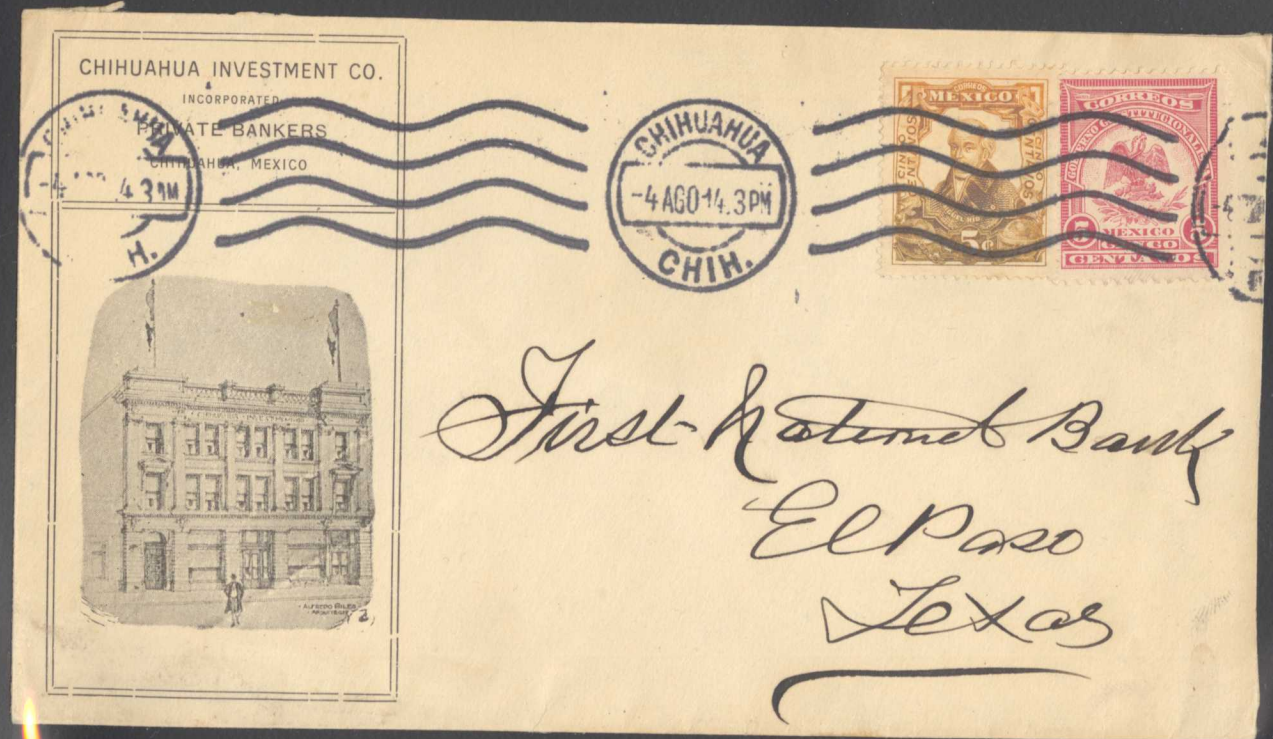 CHIHUAHUA INVESTMENT CO.
INCORPORATED
PRIVATE BANKERS
CHIHUAHUA, MEXICO
4 3 PM
H.
CHIHUAHUA
-4 AGO 14. 3 PM
CHIH.
CORREOS
MEXICO
CINCO CENTAVOS
CINCO CENTAVOS
5¢
CORREOS
GOBIERNO CONSTITUCIONALISTA
5
MEXICO
CINCO
CENTAVOS
-4
ALFREDO GILES
First National Bank
El Paso
Texas